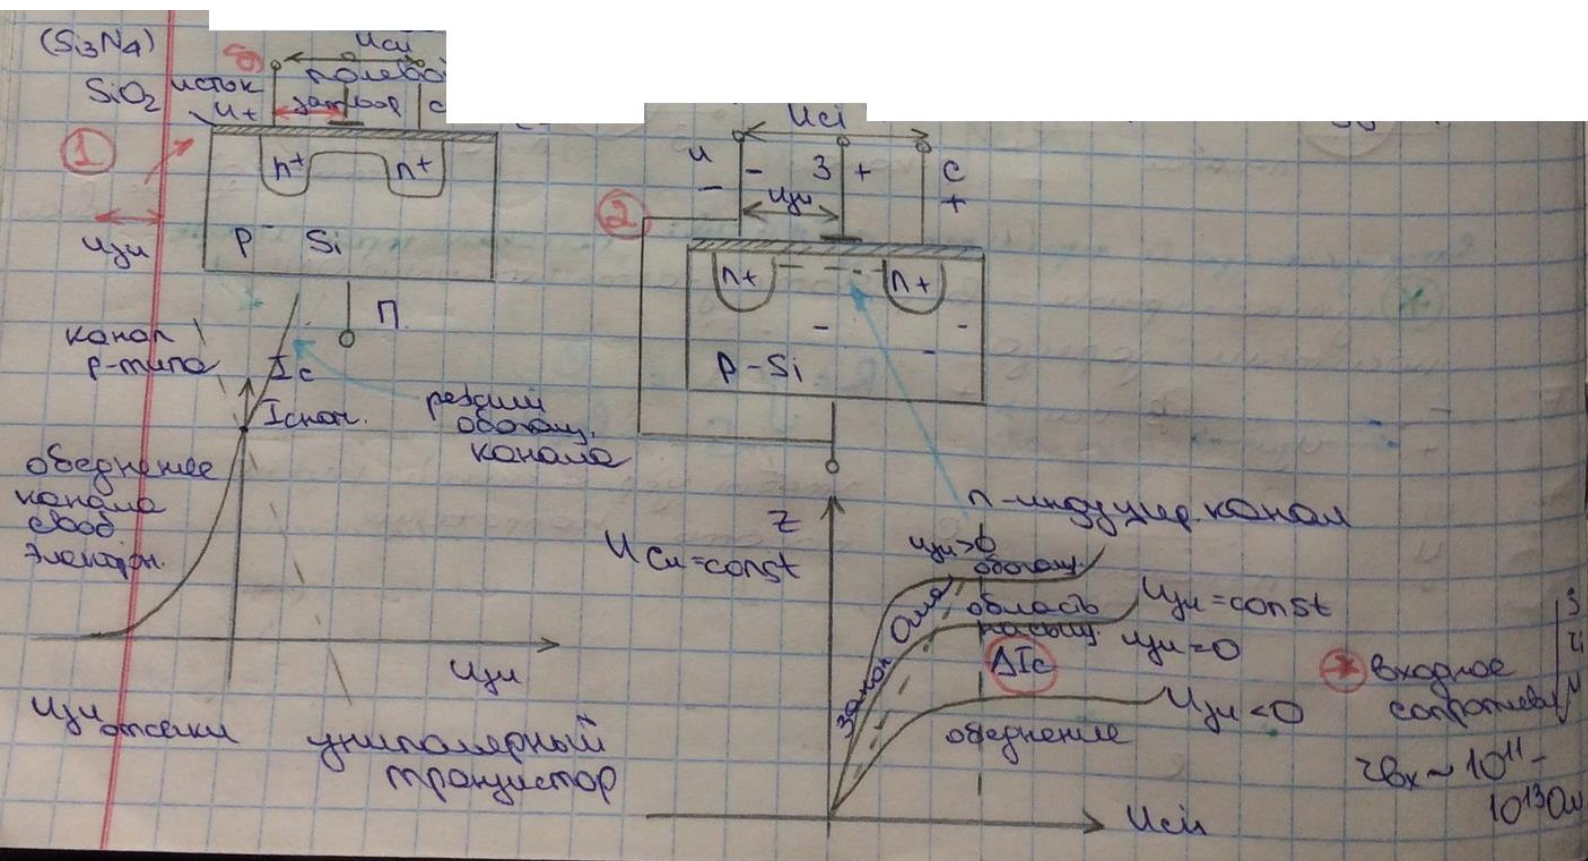 (Si3N4)
SiO2
исток
и+
Uси
полево
затвор
с
1
Uзи
n+
n+
p - Si
П.
канал
p-типа
Ic
Iснач.
режим
обогащ.
канала
обеднение
канала
своб
электрн.
Uзи
Uзи отсечки
униполярный
транзистор
2
Uси
и
-
З
+
с
+
-
Uзи
n+
n+
p-Si
n-индуцир. канал
Uси=const
Uзи>0
обогащ.
закон Ома
область
насыщ.
Uзи=const
Uзи=0
ΔIc
Uзи<0
обеднение
Uси
* входное
сопротивл
rвх ~ 10¹¹-
10¹³Ом